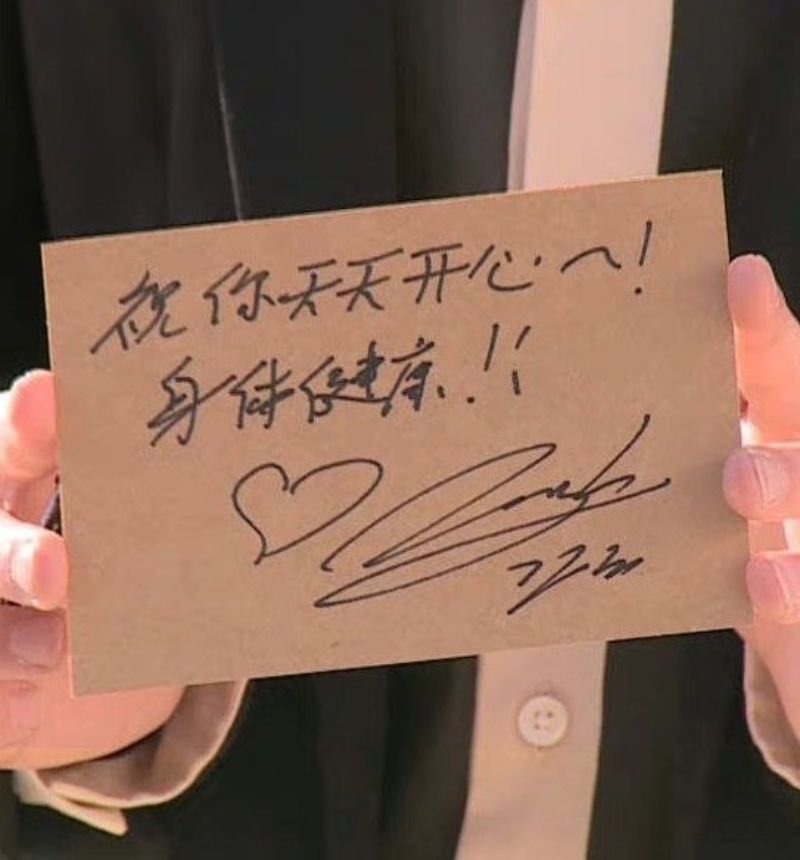 祝你天天开心へ!
身体健康.!!